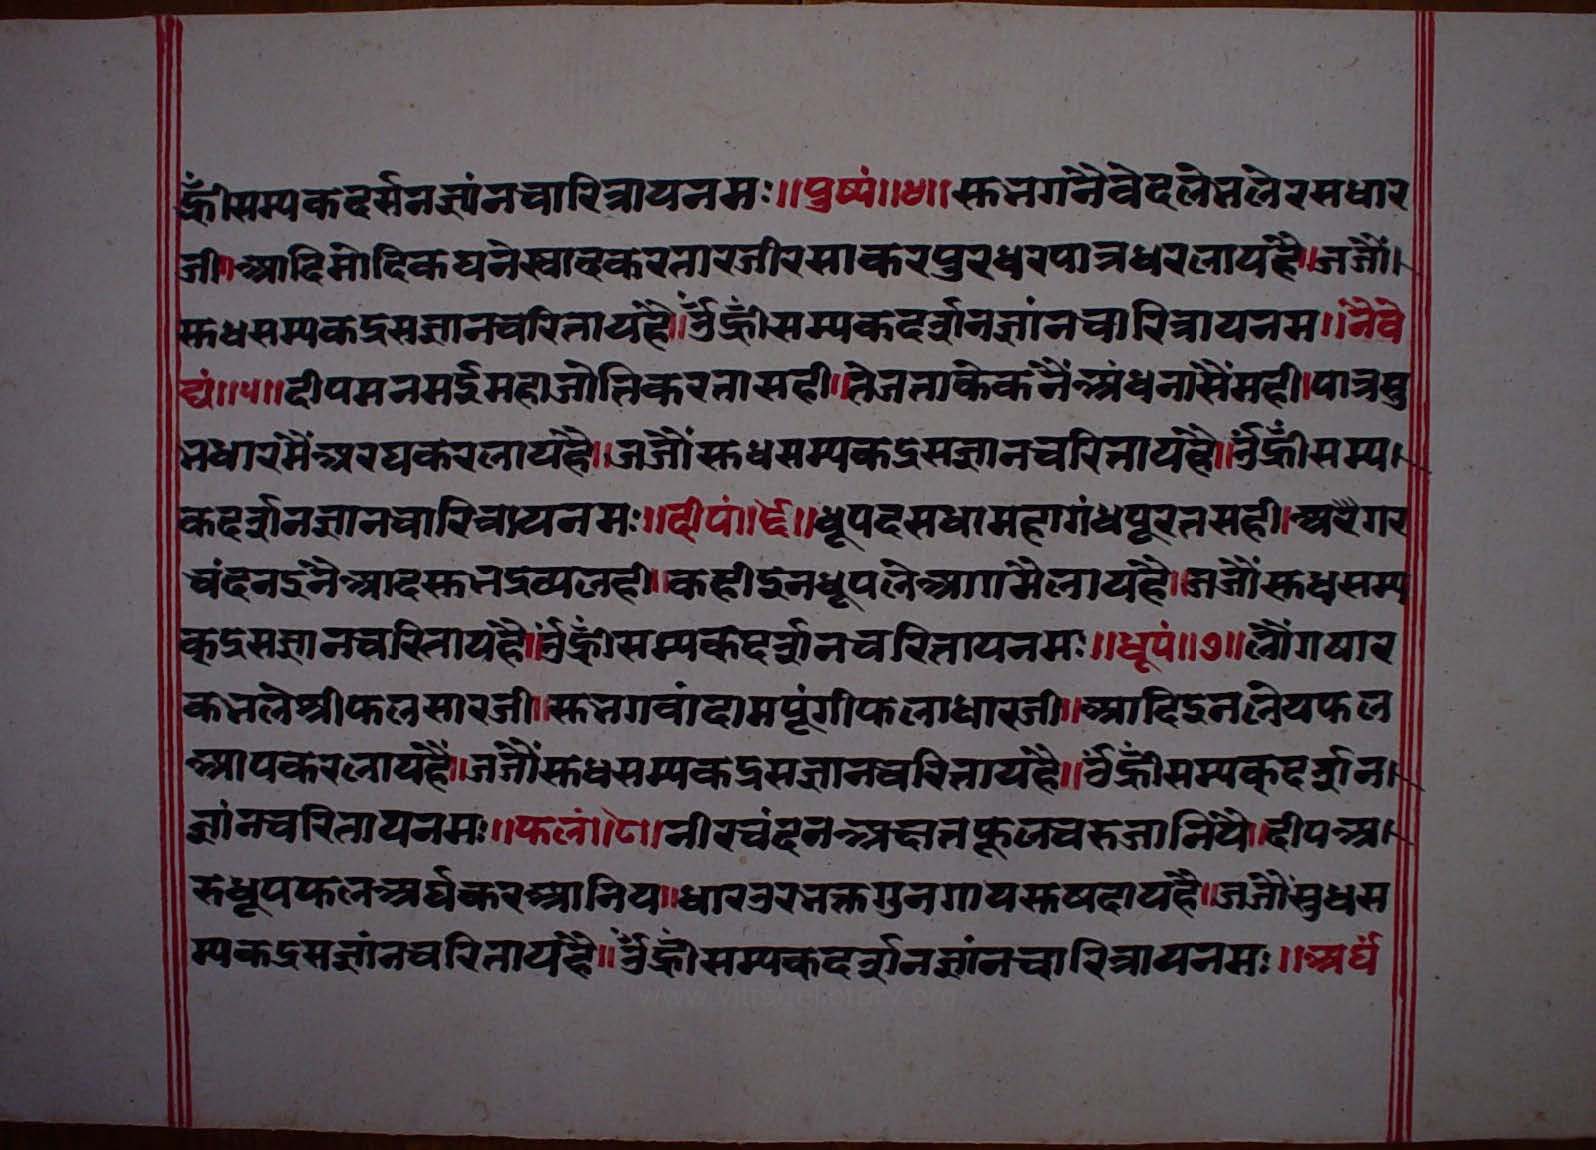 ह्रीँसम्यकदर्सनज्ञांनचारित्रायनमः॥पुष्पं॥४॥ सुतगनैवेदलेतलेरसधार
जी।आदिमोदिकघनेस्वादकरतारजीरसाकरपुरधरपात्रधरलायहै॥जजौं।
सुधसम्यकद्रसज्ञानचरितायहै॥ॐह्रीँसम्यकदर्शनज्ञांनचारित्रायनम॥नैवे
द्यं॥५॥दीपमनमईमहाजोतिकरतासही॥तेजताकेकनैंअंधनासैंमही।पात्रसु
तधारमैंअरघकरलायहै॥जजौंसुधसम्यकद्रसज्ञानचरितायहै॥ॐह्रीँसम्य।
कदर्शनज्ञानचारित्रायनमः॥दीपं॥६॥धूपदसधामहागंधपूरतसही।अरैगर
चंदनइनैआदसुतद्रव्यलही॥कहीइनधूपलेआगमैलायहै॥जजौंसुधसम्य
कद्रसज्ञानचरितायहै॥ॐह्रीँसम्यकदर्शनचरितायनमः॥धूपं॥७॥लौंगषार
कतलेश्रीफलसारजी॥सुतगवांदामपूंगीफलाधारजी॥आदिइनलेयफल
आपकरलायहैं॥जजौंसुधसम्यकद्रसज्ञानचरितायहै॥ॐह्रीँसम्यकदर्शन।
ज्ञांनचरितायनमः॥फलं॥८।नीरचंदनअक्षतफूलचरुजानियै॥दीपअ।
रुधूपफलअर्घकरआनिय॥धारउरभक्तगुनगायसुषदायहै॥जजौंसुधस
म्यकद्रसज्ञांनचरितायहै॥ॐह्रीँसम्यकदर्शनज्ञांनचारित्रायनमः॥अर्घं